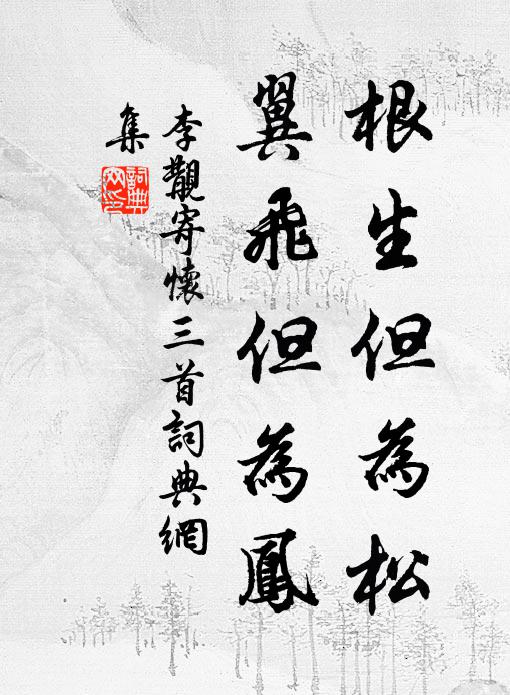 根生但為松
翼飛但為鳳
李覯寄懷三首詞典網
集
詞典網印